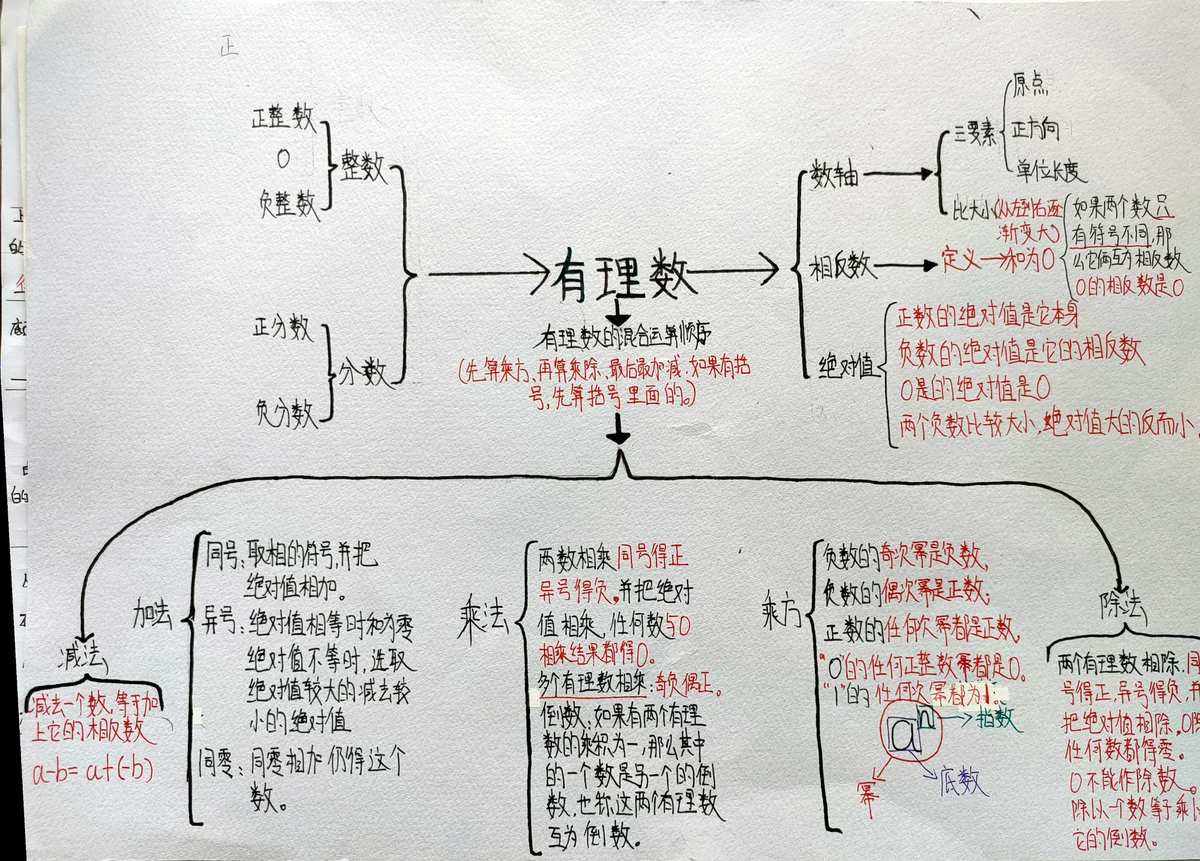 正
正整数
0
负整数
整数
正分数
负分数
分数
有理数
有理数的混合运算顺序
(先算乘方、再算乘除、最后最加减.如果有括
号,先算括号里面的。)
数轴
三要素
原点
正方向
单位长度
比大小(从左到右逐
渐变大)
相反数
定义→和为0
如果两个数只
有符号不同,那
么它俩互为相反数
0的相反数是0
绝对值
正数的绝对值是它本身
负数的绝对值是它的相反数
0是的绝对值是0
两个负数比较大小,绝对值大的反而小.
减法
减去一个数,等于加
上它的相反数
a-b=a+(-b)
加法
同号:取相的符号,并把
绝对值相加。
异号:绝对值相等时和为零
绝对值不等时,选取
绝对值较大的减去较
小的绝对值
同零:同零相加仍得这个
数。
乘法
两数相乘同号得正
异号得负。并把绝对
值相乘,任何数与0
相乘结果都得0。
多个有理数相乘:奇负偶正。
倒数:如果有两个有理
数的乘积为一,那么其中
的一个数是另一个的倒
数,也称这两个有理数
互为倒数。
乘方
负数的奇次幂是负数,
负数的偶次幂是正数;
正数的任何次幂都是正数,
"0"的任何正整数幂都是0。
"1"的任何次幂都为1。
an
指数
幂
底数
除法
两个有理数相除,同
号得正,异号得负,并
把绝对值相除。0除
任何数都得零。
0不能作除数。
除以一个数等于乘以
它的倒数。